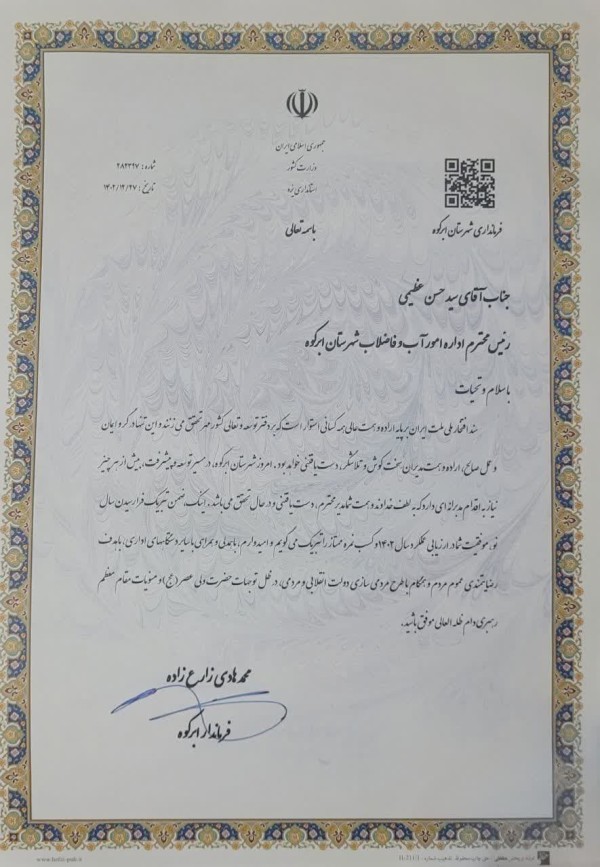 جمهوری اسلامی ایران
وزارت کشور
استانداری یزد
شماره: ۲۸۲۳۹۷
تاریخ: ۱۴۰۲/۱۲/۲۷
فرمانداری شهرستان ابرکوه
باسمه تعالی
جناب آقای سید حسن عظیمی
رئیس محترم اداره امور آب و فاضلاب شهرستان ابرکوه
با سلام و تحیات
سند افتخار ملی ملت ایران بر پایه اراده و همت عالی همه کسانی استوار است که بر دفتر توسعه و تعالی کشور مهر تحقق می زنند و این تنها در گرو ایمان
و عمل صالح، اراده و همت مدیران سخت کوش و تلاشگر، دست یافتنی خواهد بود. امروز شهرستان ابرکوه، در مسیر توسعه و پیشرفت، بیش از هر چیز
نیاز به اقدام مدبرانه ای دارد که به لطف خداوند و همت شما مدیر محترم، دست یافتنی و در حال تحقق می باشد. اینک، ضمن تبریک فرا رسیدن سال
نو، موفقیت شما در ارزیابی عملکرد سال ۱۴۰۲ و کسب نمره ممتاز را تبریک می گویم و امیدوارم، با همدلی و همراهی با سایر دستگاههای اداری، با هدف
رضایتمندی عموم مردم و همگام با طرح مردمی سازی دولت انقلابی و مردمی، در ظل توجهات حضرت ولی عصر (عج) و منویات مقام معظم
رهبری دام ظله العالی موفق باشید.
محمد هادی زارع زاده
فرماندار ابرکوه